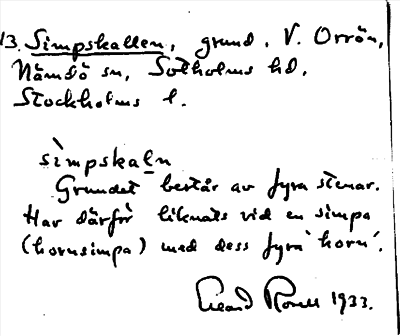 13. Simpskallen, grund. V. Orrön,
Nämdö sn, Sotholms hd,
Stockholms l.
simpskaln
Grundet består av fyra stenar.
Har därför liknats vid en simpa
(hornsimpa) med dess fyra 'horn'.
1933.